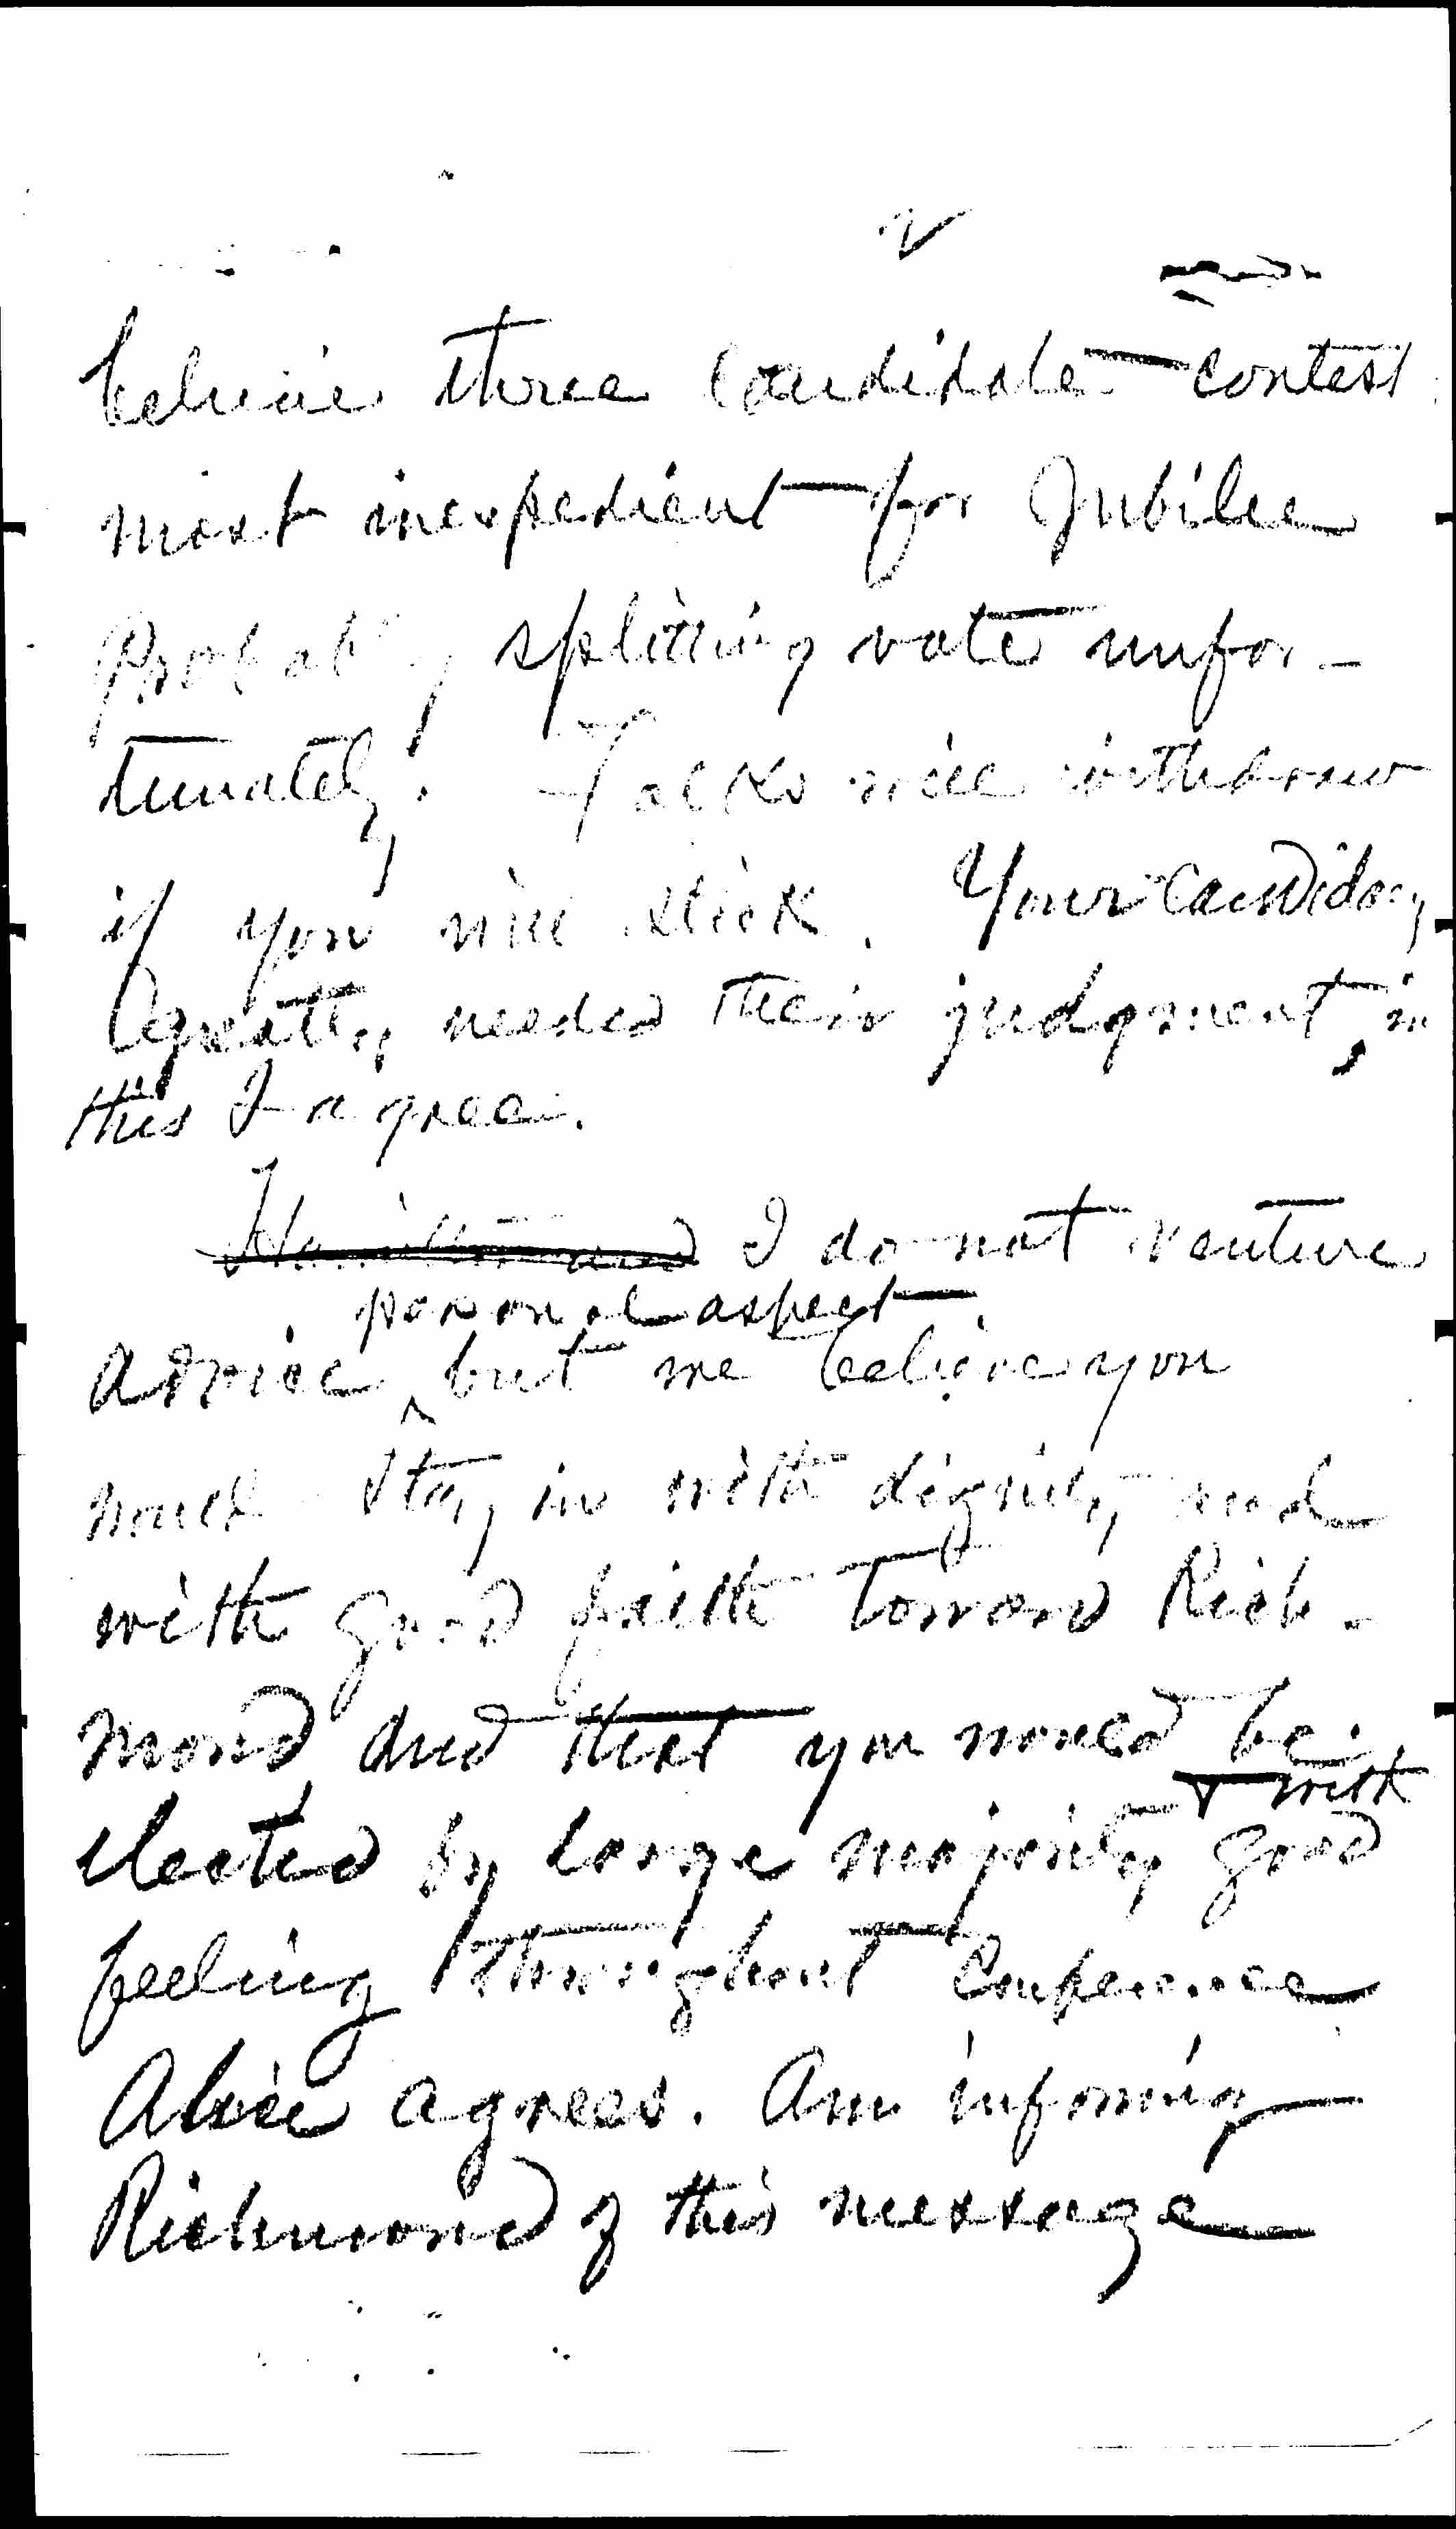 believe three candidate contest
most inexpedient for Jubilee
Probably splitting vote unfor-
tunately. Falks will withdraw
if you will stick. Your candidacy
greatly needed their judgment, in
this I agree.
Hamilton and I do not venture
personal aspect
advice but we believe you
would stay in with dignity and
with good faith toward Rich-
mond and that you would be
& with
elected by large majority good
feeling throughout Conference
Alice agrees. Am informing
Richmond of this message